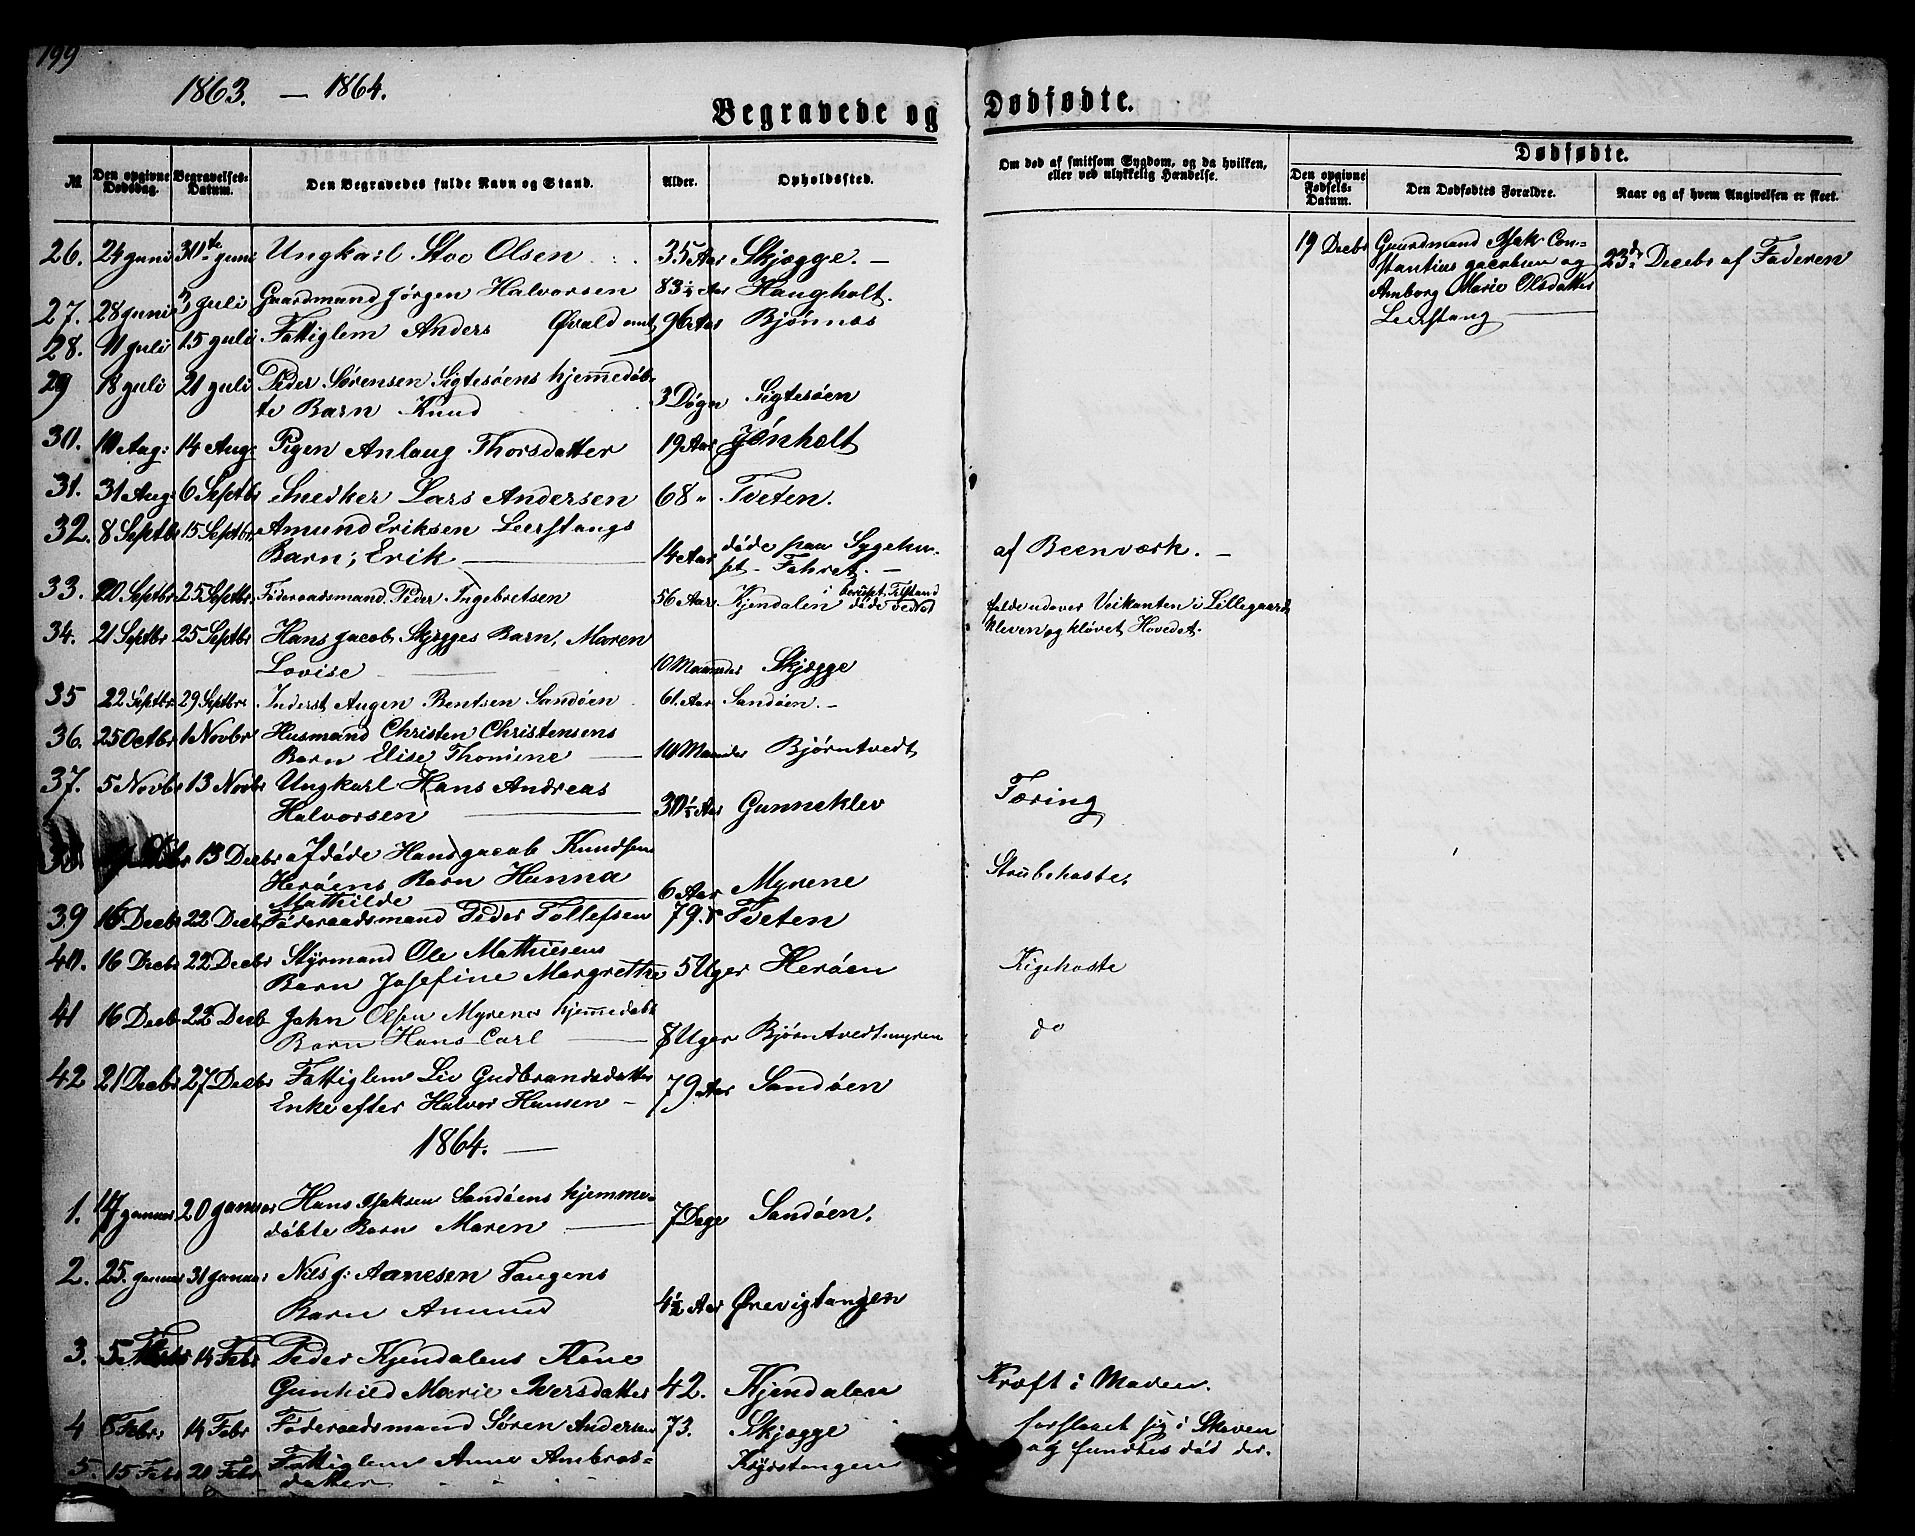 199
1863. — 1864.
Begravede og Dødfødte.
№
Den opgivne Dødsdag.
Begravelses-Datum.
Den Begravedes fulde Navn og Stand.
Alder.
Opholdssted.
Om død af smitsom Sygdom, og da hvilken, eller ved ulykkelig Hændelse.
Dødfødte.
Den opgivne Fødsels-Datum.
Den Dødfødtes Forældre.
Naar og af hvem Angivelsen er skeet.
26. 24 Juni 30te Juni Ungkarl Olsen 35 Aar Skjægge. —
19 Decbr Gaardmand Isak Con-
stantius Jacobsen og 23de Decebr af Faderen
Amborg Marie Olsdatter
Leerstang —
27. 28 Juni 3 Juli Gaardmand Jørgen Halvorsen 83½ Aar Haugholt.
28. 11 Juli 15 Juli Fattiglem Anders 96 Aar Bjønnes
29 18 Juli 21 Juli Peder Sørensen Sigtesøens hjemmedøb-
te Barn Knud 3 Døgn Sigtesøen
30. 10 Aug: 14 Aug: Pigen Anlaug Thorsdatter 19 Aar Jønholt
31. 31 Aug 6 Septbr Snedker Lars Andersen 68 " Tveten.
32. 8 Septbr 15 Septbr. Amund Eriksen Leerstangs
Barn, Erik — 14 Aar døde paa Sygehu-
set — af Beenværk. —
33. 20 Septbr 25 Septbr. Føderaadsmand Peder Ingebretsen 56 Aar Kjendalen i beruset Tilstand
døde ved at falde udover Veikanten i Lillegaard
kleven og kløvet Hovedet.
34. 21 Septbr 25 Septbr Hans Jacob Skjegges Barn, Maren
Lovise — 10 Maaneder Skjægge
35 22 Septbr 29 Septbr. Inderst Augen Bentsen Sandøen 61. Aar Sandøen. —
36. 25 Octbr 1 Novbr Husmand Christen Christensens
Barn Elise Thomine — 10 Maaneder Bjørntvedt
37. 5 Novbr 13 Novbr Ungkarl Hans Andreas
Halvorsen — 30½ Aar Gunneklev Tæring
38 13 Decbr afdøde Hans Jacob Knudsen
Herøens Barn Hanna
Mathilde 6 Aar Myrene Strubehoste.
39 16 Decbr 22 Decbr Føderaadsmand Peder Tollefsen 79. Tveten
40. 16 Decbr 22 Decbr Styrmand Ole Mathiesens
Barn Josefine Margrethe 5 Uger Herøen Kigehoste
41 16 Decbr 22 Decbr John Olsen Myrenes hjemmedøbt
Barn Hans Carl — 8 Uger Bjørntvedtmyren do
42 21 Decbr 27 Decbr Fattiglem Liv Gudbrandsdatter
Enke efter Halvor Hansen — 79 Aar Sandøen
1864. —
1. 14 Januar 20 Januar Hans Isaksen Sandøens hjemme-
døbte Barn Maren — 7 Dage Sandøen.
2. 25. Januar 31 Januar Nils J: Aanesen Tangens
Barn Amund 4½ Aar Ørevigtangen
3. 5 Febr 14 Febr Peder Kjendalens Kone
Gunhild Marie Iversdatter 42. Kjendalen Kræft i Maven.
4 8 Febr: 14 Febr Føderaadsmand Søren Andersen 73. Skjægge forslaaet sig i Skoven
og fundtes død der.
5. 15 Febr 20 Febr Fattiglem Anne Ambros-
datter Krystangen